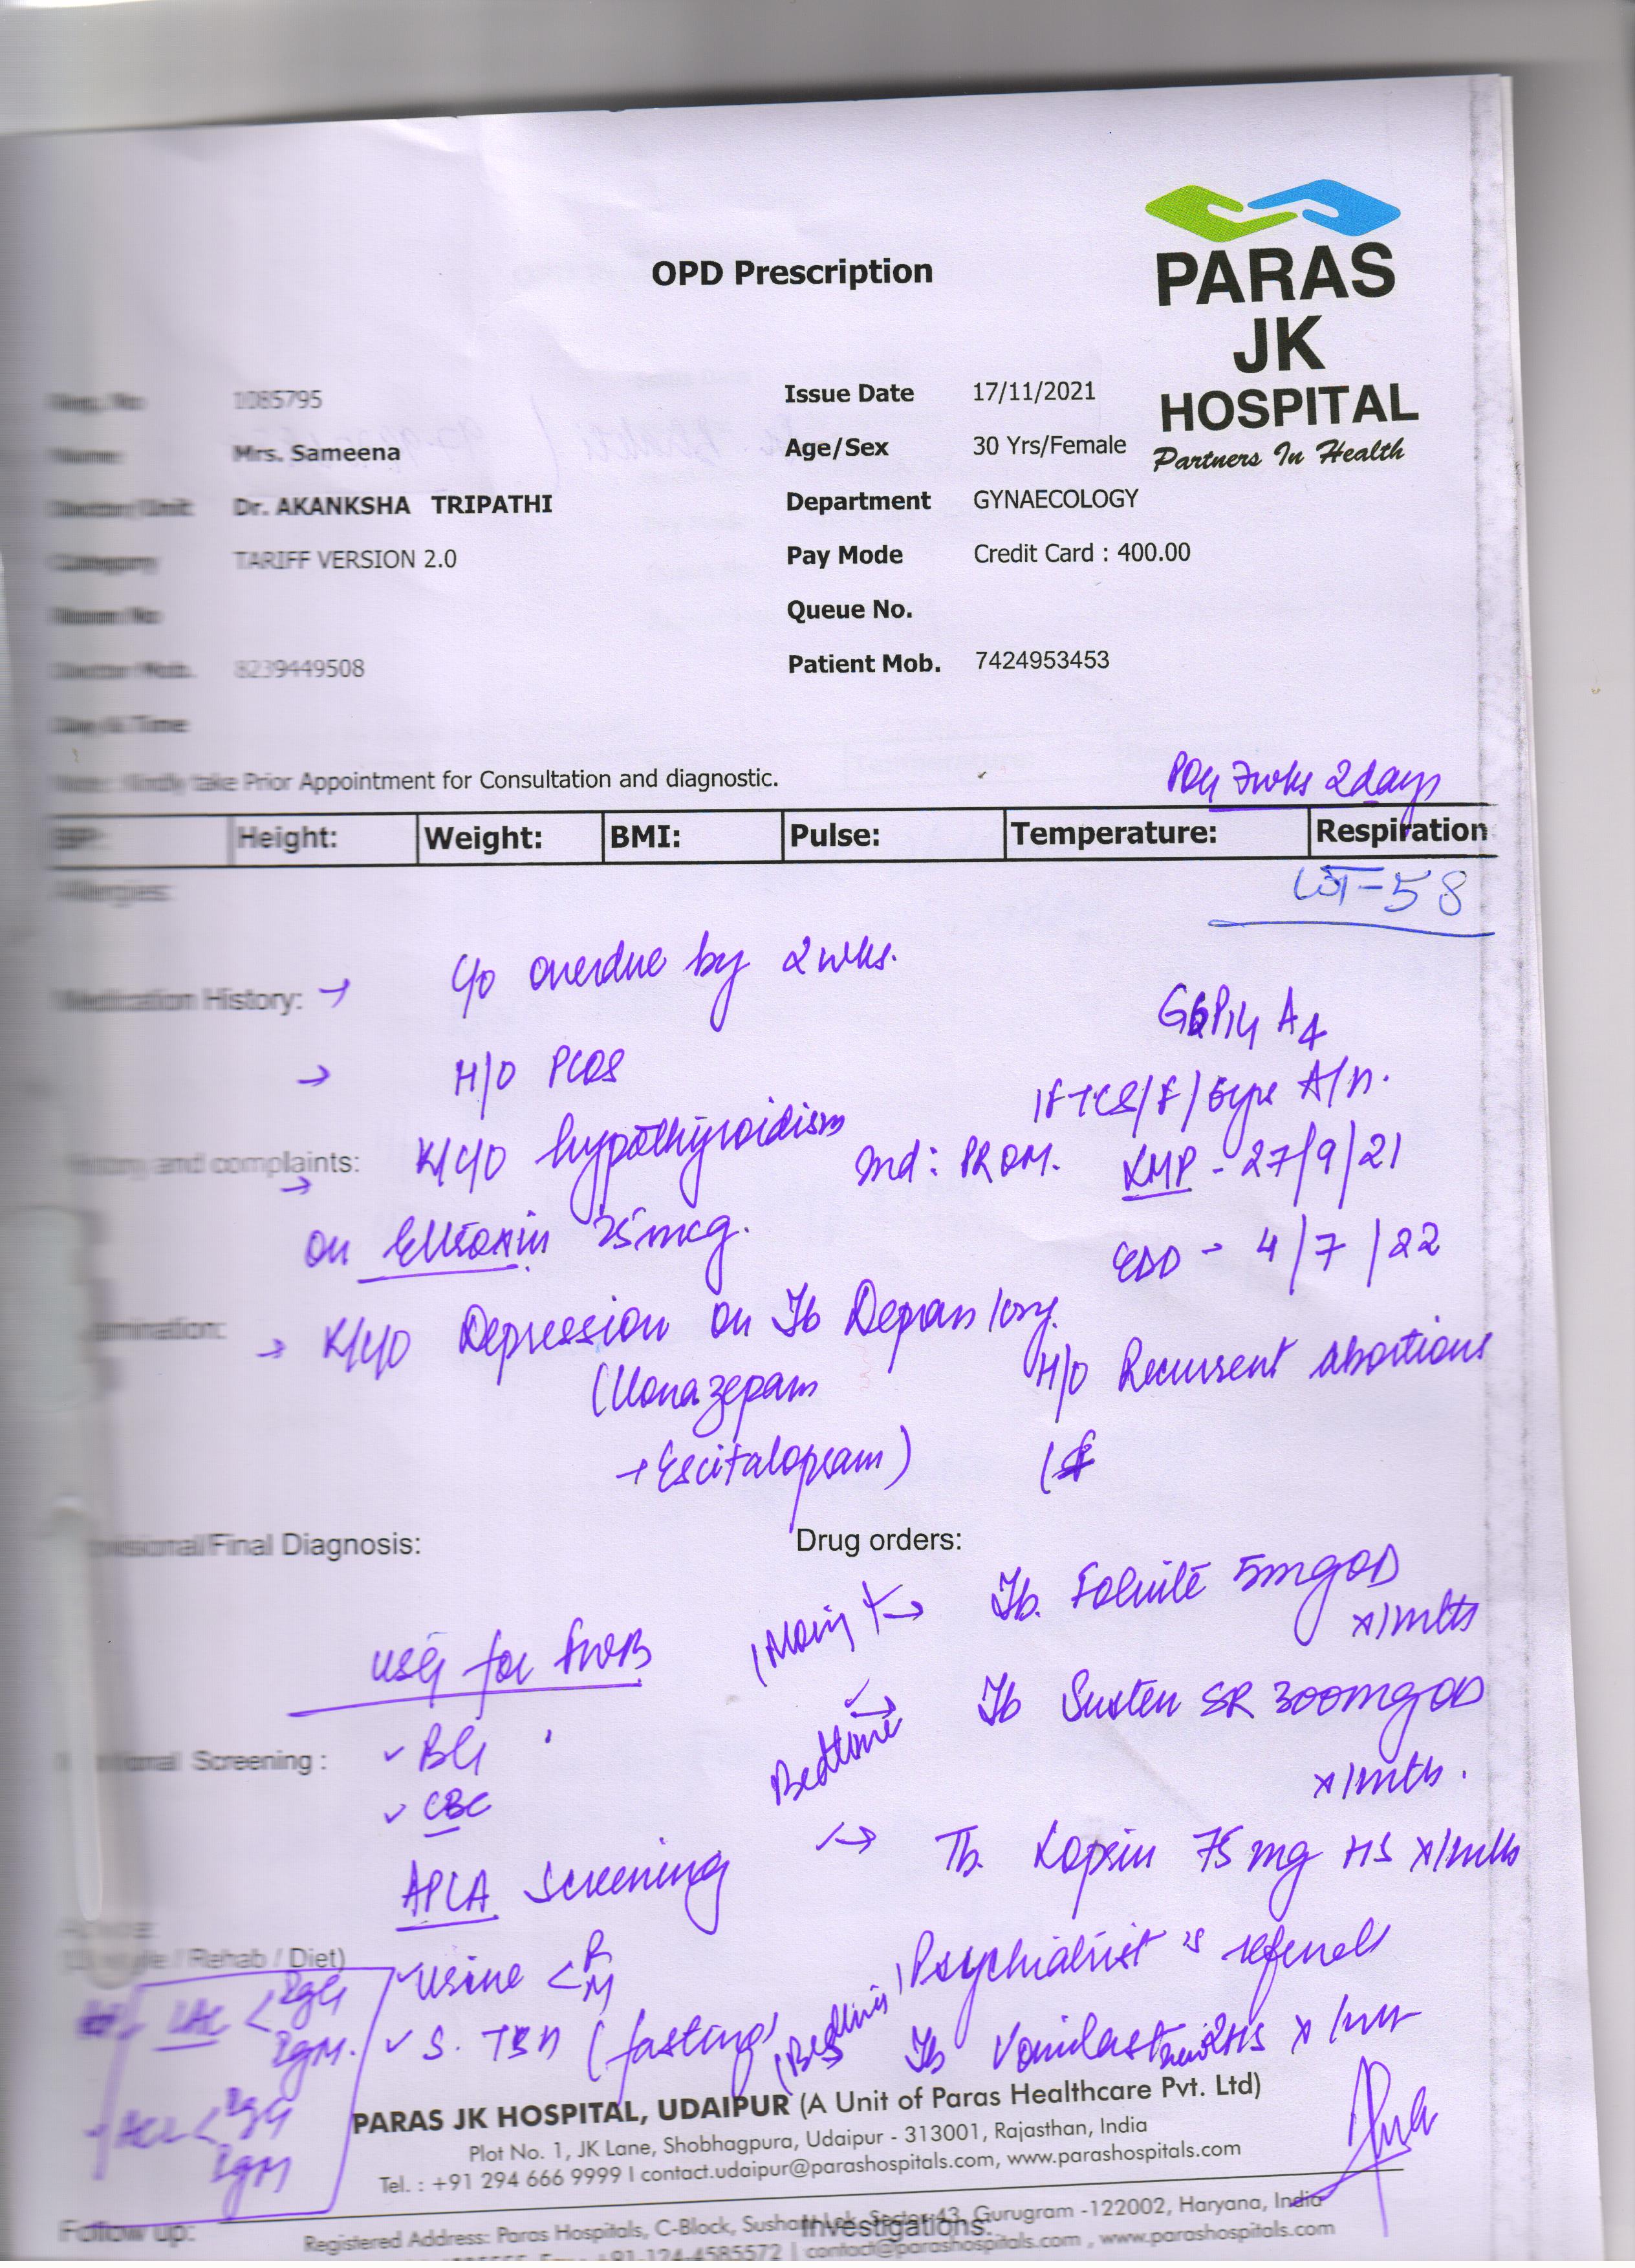 OPD Prescription
PARAS
JK
HOSPITAL
Partners In Health
Reg. No 1085795
Issue Date 17/11/2021
Name Mrs. Sameena
Age/Sex 30 Yrs/Female
Doctor/Unit Dr. AKANKSHA TRIPATHI
Department GYNAECOLOGY
Category TARIFF VERSION 2.0
Pay Mode Credit Card : 400.00
Room No
Queue No.
Doctor Mob. 8239449508
Patient Mob. 7424953453
Day & Time
Note: Kindly take Prior Appointment for Consultation and diagnostic.
POG 7wks 2days
Height: Weight: BMI: Pulse: Temperature: Respiration
58
Allergies:
Medication History: → C/o overdue by 2 wks.
→ H/O PCOS
A4
History and complaints: K/C/O hypothyroidism
Ind: PROM.
LMP - 27/9/21
→ on Eltroxin 25mcg.
EDD - 4/7/22
Examination: → K/C/O Depression on Tb
(Clonazepam
+ Escitalopram)
H/O Recurrent abortions
Provisional/Final Diagnosis:
Drug orders:
USG for FWB
→ Tb. Folvite 5mg OD
x 1 mth
Bedtime → Tb Susten SR 300mg OD
x 1 mth.
Nutritional Screening :
✓ BG
✓ CBC
→ Tb. 75 mg HS x 1 mth
APLA Screening
(Lifestyle / Rehab / Diet)
✓ Urine < R
M
Psychiatrist's referral
LAC < IgG
IgM.
✓ S. TSH (fasting)
Tb
ACL < IgG
IgM
PARAS JK HOSPITAL, UDAIPUR (A Unit of Paras Healthcare Pvt. Ltd)
Plot No. 1, JK Lane, Shobhagpura, Udaipur - 313001, Rajasthan, India
Tel. : +91 294 666 9999 I contact.udaipur@parashospitals.com, www.parashospitals.com
Follow up:
Investigations:
Registered Address: Paras Hospitals, C-Block, Sushant Lok, Sector-43, Gurugram -122002, Haryana, India
+91-124-4585572 | contact@parashospitals.com , www.parashospitals.com